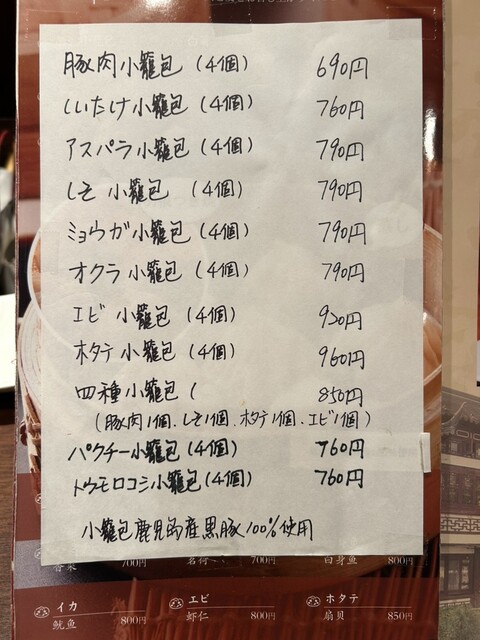 豚肉小籠包(4個) 690円
しいたけ小籠包(4個) 760円
アスパラ小籠包(4個) 790円
しそ小籠包(4個) 790円
ミョウガ小籠包(4個) 790円
オクラ小籠包(4個) 790円
エビ小籠包(4個) 920円
ホタテ小籠包(4個) 960円
四種小籠包( 850円
(豚肉1個、しそ1個、ホタテ1個、エビ1個)
パクチー小籠包(4個) 760円
トウモロコシ小籠包(4個) 760円
小籠包鹿児島産黒豚100%使用
香菜 700円 茗荷 700円 白身魚 800円
イカ エビ ホタテ
魷魚 800円 虾仁 800円 扇贝 850円